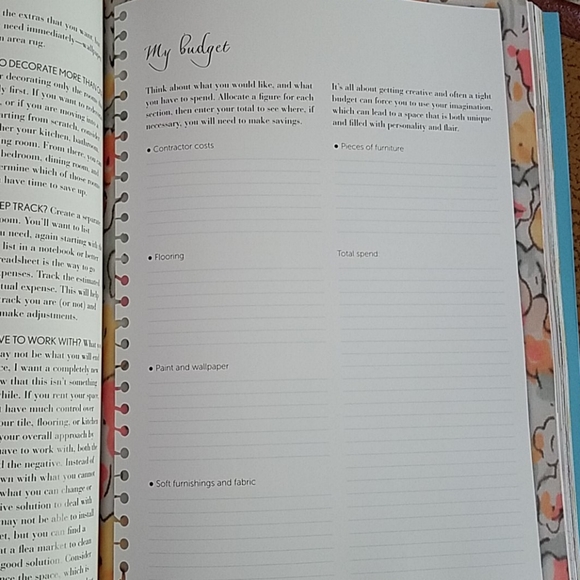 the extras that you want
need immediately—wallpaper
an area rug.
O DECORATE MORE THAN O
decorating only the
ly first. If you want to
, or if you are moving into
arting from scratch, consider
her your kitchen, bathroom
ng room. From there, you
bedroom, dining room,
ermine which of those rooms
have time to save up.
EP TRACK? Create a separate
oom. You'll want to list
u need, again starting with
list in a notebook or better
readsheet is the way to go
penses. Track the estimated
tual expense. This will help
rack you are (or not) and
make adjustments.
VE TO WORK WITH? What
ay not be what you will end
ce, I want a completely new
w that this isn't something
hile. If you rent your space
t have much control over
our tile, flooring, or kitchen
your overall approach by
ave to work with, both the
d the negative. Instead of
wn with what you cannot
what you can change or
ive solution to deal with
may not be able to install
et, but you can find a
at a flea market to clean
good solution. Consider
nce the space, which is
My budget
Think about what you would like, and what
you have to spend. Allocate a figure for each
section, then enter your total to see where, if
necessary, you will need to make savings.
• Contractor costs
• Flooring
• Paint and wallpaper
• Soft furnishings and fabric
It's all about getting creative and often a tight
budget can force you to use your imagination,
which can lead to a space that is both unique
and filled with personality and flair.
• Pieces of furniture
Total spend